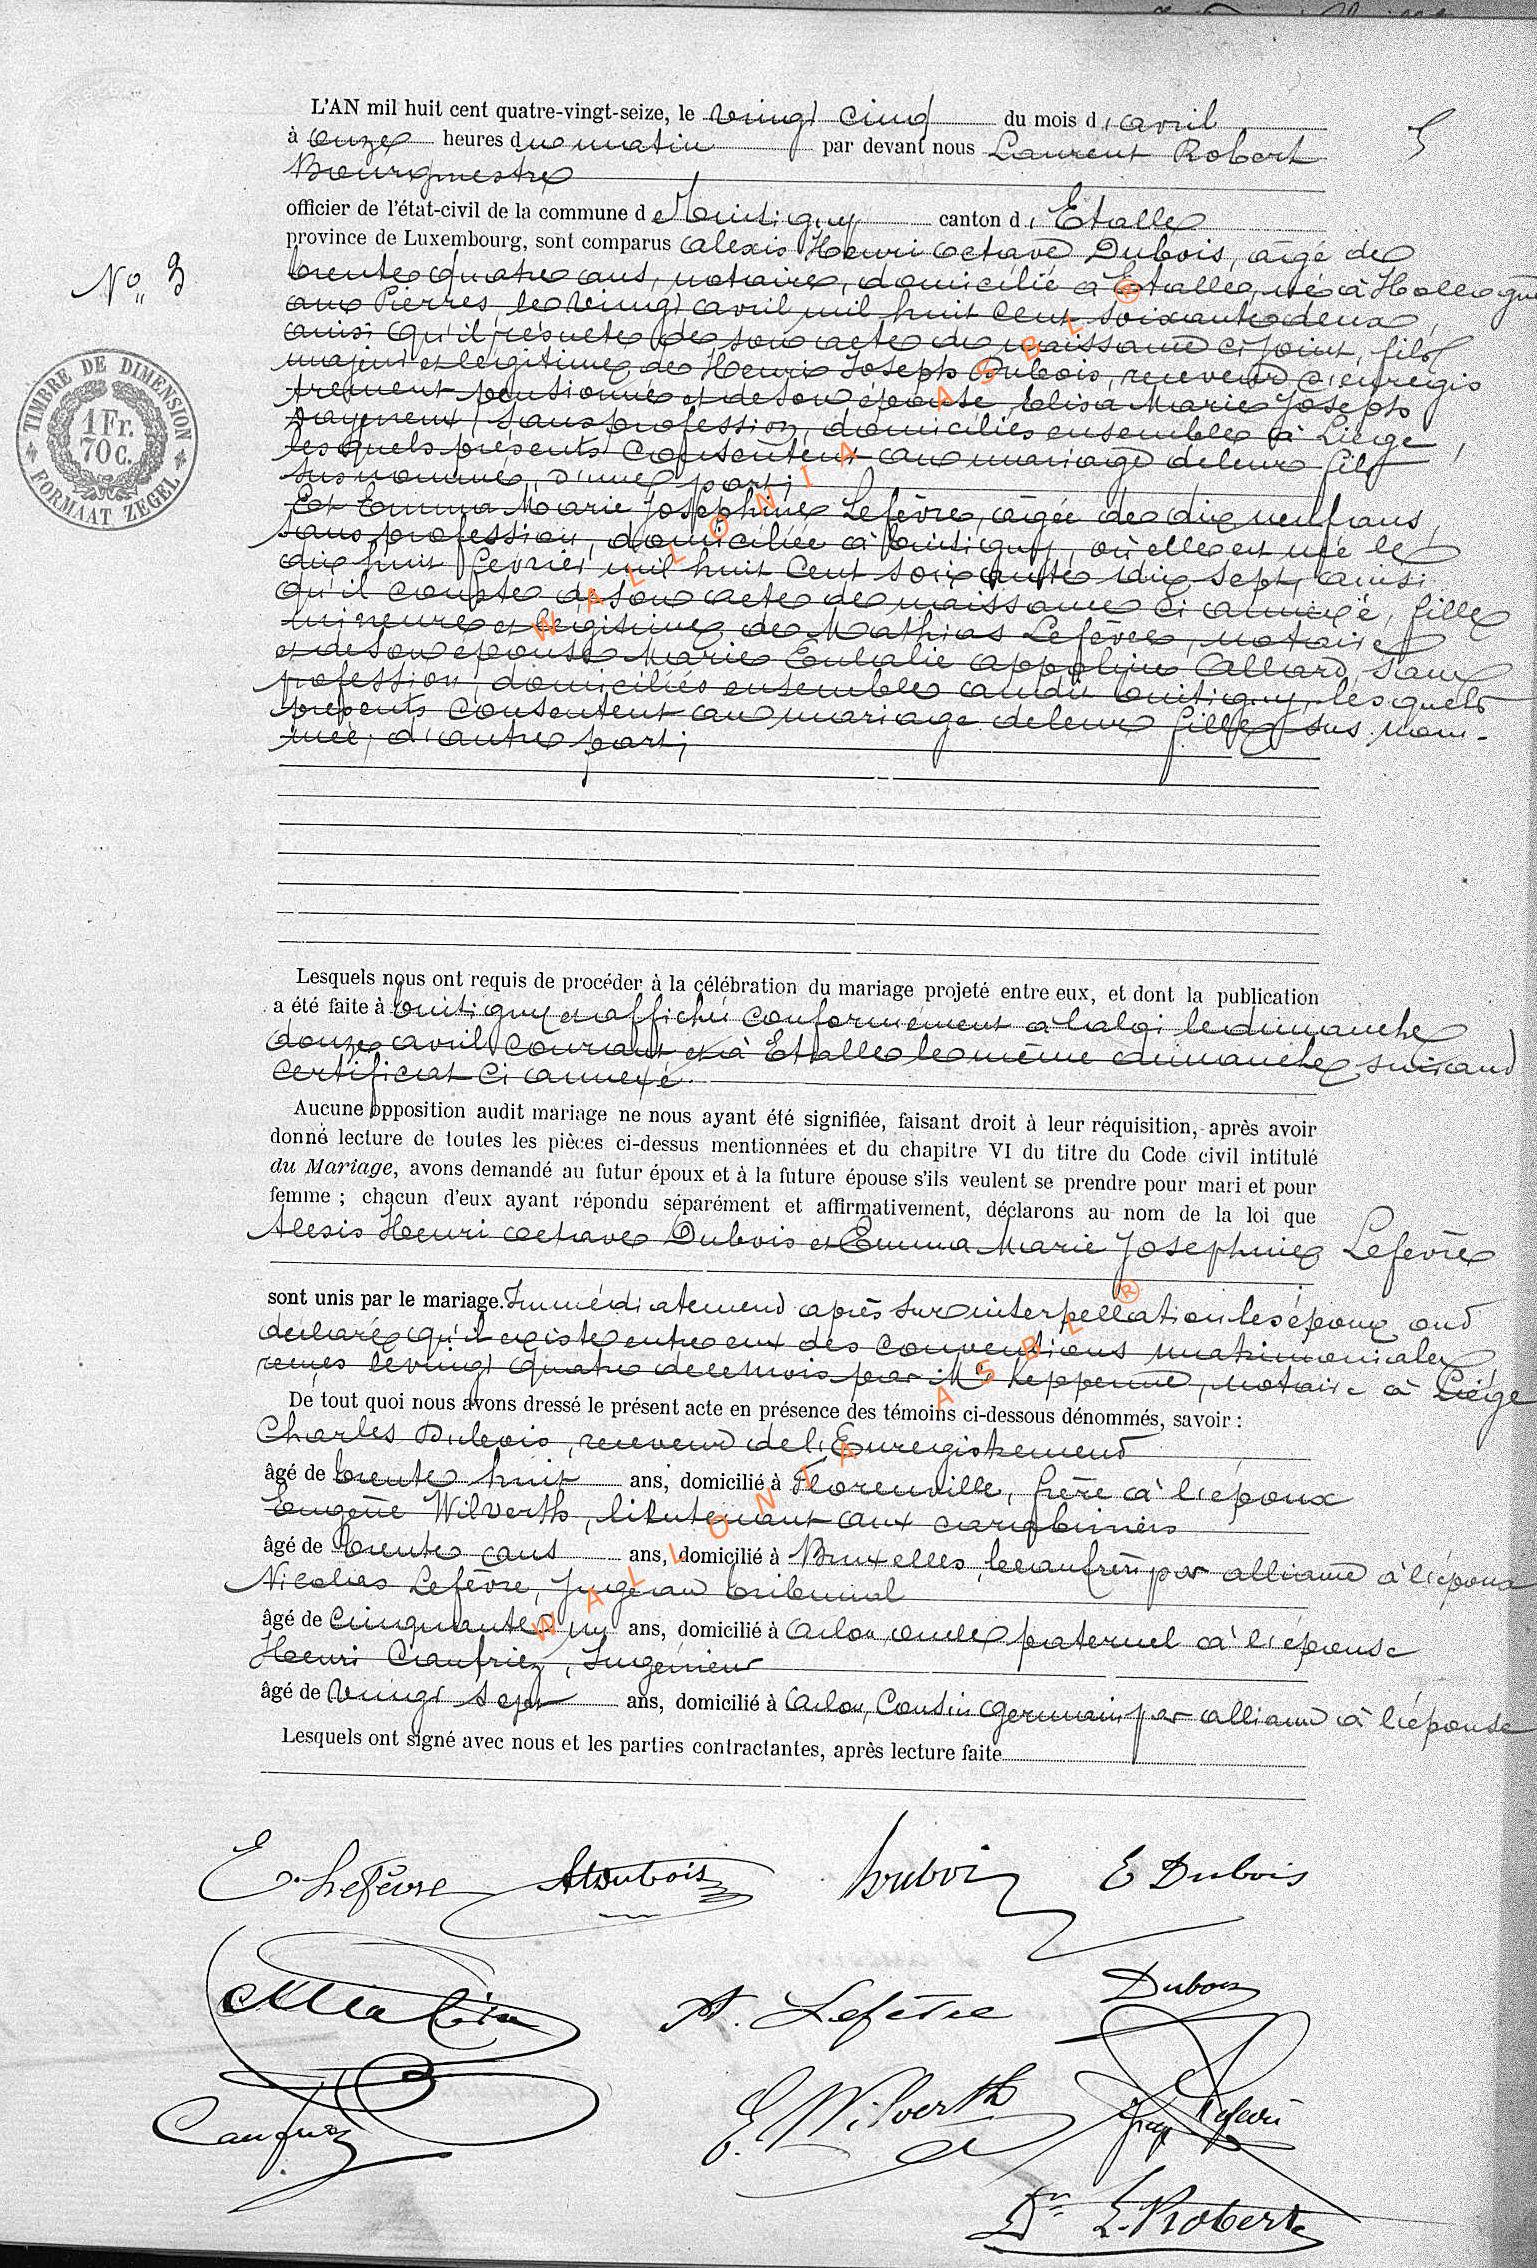 L'AN mil huit cent quatre-vingt-seize, le vingt cinq du mois d'avril
à onze heures du matin par devant nous Laurent Robert
Bourgmestre
officier de l'état-civil de la commune de Tintigny canton d'Etalle
province de Luxembourg, sont comparus Alexis Henri Octave Dubois, âgé de
trente quatre ans, notaire, domicilié à Etalle, né à Hollogne
aux Pierres, le vingt avril mil huit cent soixante deux,
ainsi qu'il résulte de son acte de naissance ci joint, fils
majeur et légitime de Henri Joseph Dubois, receveur d'enregis
trement pensionné et de son épouse Elisa Marie Joseph
sans profession, domiciliés ensemble à Liège,
lesquels présents consentent au mariage de leur fils
susnommé, d'une part;
Et Emma Marie Joséphine Lefèvre, âgée de dix neuf ans,
sans profession, domiciliée à Tintigny, où elle est née le
dix huit février mil huit cent soixante dix sept, ainsi
qu'il conste de son acte de naissance ci annexé, fille
mineure et légitime de Mathias Lefèvre, notaire
et de son épouse Marie Eulalie Appoline Allard, sans
profession, domiciliés ensemble audit Tintigny, lesquels
présents consentent au mariage de leur fille sus nom-
mée, d'autre part;
Lesquels nous ont requis de procéder à la célébration du mariage projeté entre eux, et dont la publication
a été faite à Tintigny et affiché conformément à la loi le dimanche
douze avril courant et à Etalle le même dimanche suivant
certificat ci annexé.
Aucune opposition audit mariage ne nous ayant été signifiée, faisant droit à leur réquisition, après avoir
donné lecture de toutes les pièces ci-dessus mentionnées et du chapitre VI du titre du Code civil intitulé
du Mariage, avons demandé au futur époux et à la future épouse s'ils veulent se prendre pour mari et pour
femme ; chacun d'eux ayant répondu séparément et affirmativement, déclarons au nom de la loi que
Alexis Henri Octave Dubois et Emma Marie Joséphine Lefèvre
sont unis par le mariage. Immédiatement après sur interpellation les époux ont
déclaré qu'il existe entre eux des conventions matrimoniales
reçues le vingt quatre de ce mois par Me Keppenne, notaire à Liège
De tout quoi nous avons dressé le présent acte en présence des témoins ci-dessous dénommés, savoir :
Charles Dubois, receveur de l'Enregistrement
âgé de trente huit ans, domicilié à Florenville, frère à l'époux
Eugène Wilverth, lieutenant aux carabiniers
âgé de trente ans ans, domicilié à Bruxelles, beaufrère par alliance à l'époux
Nicolas Lefèvre, Juge au tribunal
âgé de cinquante un ans, domicilié à Arlon, oncle paternel à l'épouse
Henri Caufriez, Ingénieur
âgé de vingt sept ans, domicilié à Arlon, Cousin germain par alliance à l'épouse
Lesquels ont signé avec nous et les parties contractantes, après lecture faite
E. Lefèvre ADubois Dubois E Dubois
A. Lefèvre Dubois
Caufriez E. Wilverth Lefèvre
Dr L. Robert
No 3
5
TIMBRE DE DIMENSION
1 Fr.
70 c.
FORMAAT ZEGEL
WALLONIA ASBL ®
WALLONIA ASBL ®